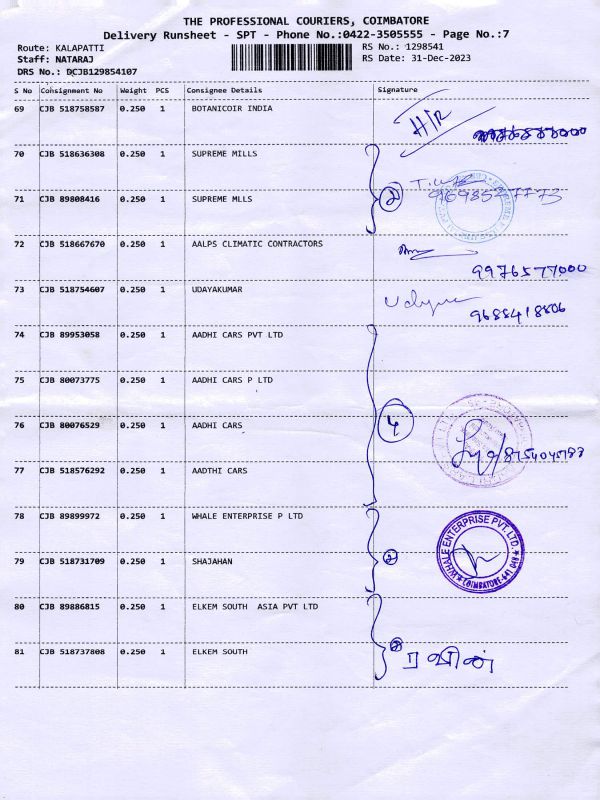 THE PROFESSIONAL COURIERS, COIMBATORE
Delivery Runsheet - SPT - Phone No.:0422-3505555 - Page No.:7
Route: KALAPATTI RS No.: 1298541
Staff: NATARAJ RS Date: 31-Dec-2023
DRS No.: DCJB129854107
S No Consignment No Weight PCS Consignee Details Signature
69 CJB 518758587 0.250 1 BOTANICOIR INDIA H/R
70 CJB 518636308 0.250 1 SUPREME MILLS
71 CJB 89808416 0.250 1 SUPREME MLLS 2
72 CJB 518667670 0.250 1 AALPS CLIMATIC CONTRACTORS
9976577000
73 CJB 518754607 0.250 1 UDAYAKUMAR
9688418806
74 CJB 89953058 0.250 1 AADHI CARS PVT LTD
75 CJB 80073775 0.250 1 AADHI CARS P LTD
76 CJB 80076529 0.250 1 AADHI CARS 4
77 CJB 518576292 0.250 1 AADTHI CARS
78 CJB 89899972 0.250 1 WHALE ENTERPRISE P LTD
WHALE ENTERPRISE PVT. LTD.
COIMBATORE-641 048
79 CJB 518731709 0.250 1 SHAJAHAN 2
80 CJB 89886815 0.250 1 ELKEM SOUTH ASIA PVT LTD
81 CJB 518737808 0.250 1 ELKEM SOUTH 2 ரவின்